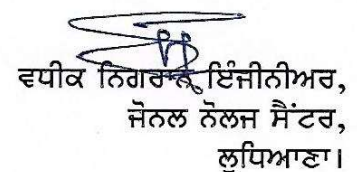 ਵਧੀਕ ਨਿਗਰਾਨ ਇੰਜੀਨੀਅਰ,
ਜੋਨਲ ਨੋਲਜ ਸੈਂਟਰ,
ਲੁਧਿਆਣਾ।